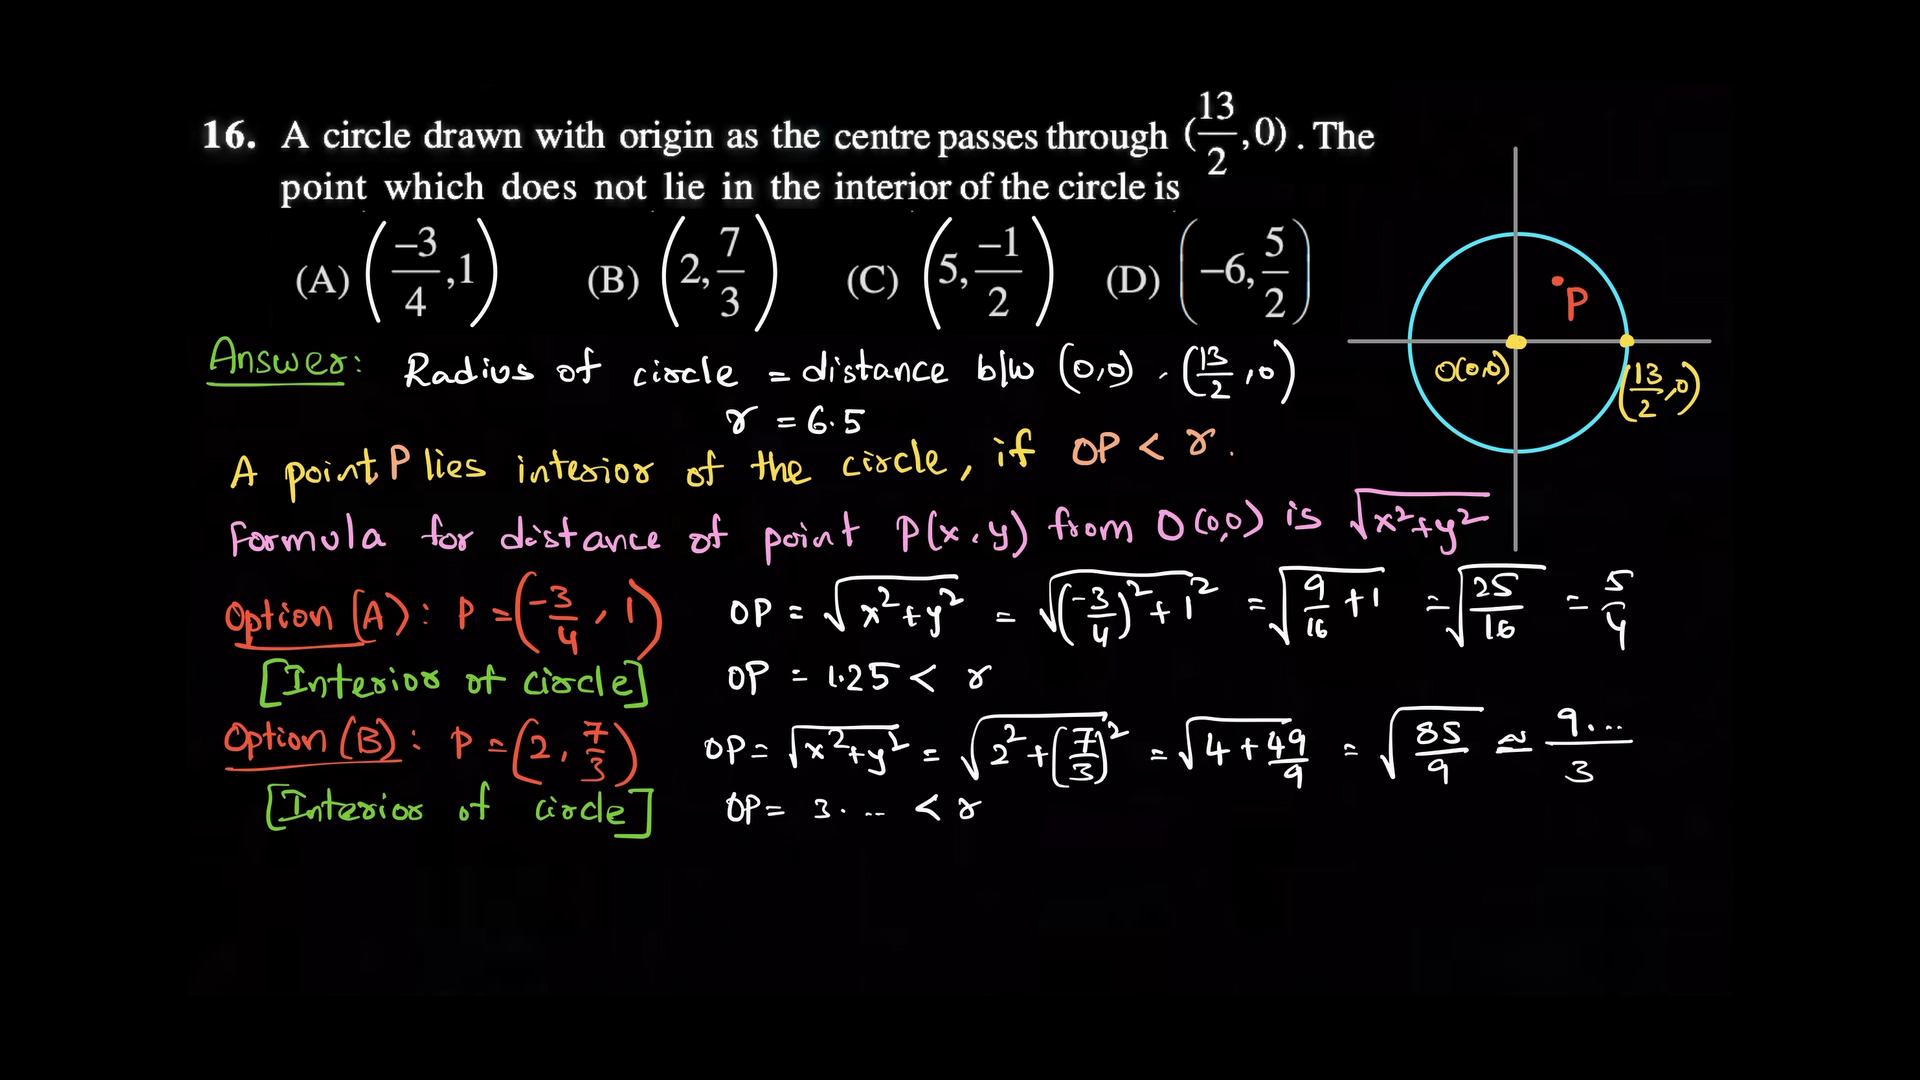 16. A circle drawn with origin as the centre passes through (13/2, 0). The
point which does not lie in the interior of the circle is
(A) (−3/4, 1) (B) (2, 7/3) (C) (5, −1/2) (D) (−6, 5/2)
P
O(0,0)
(13/2, 0)
Answer: Radius of circle = distance b/w (0,0), (13/2, 0)
r = 6.5
A point P lies interior of the circle, if OP < r.
Formula for distance of point P(x,y) from O(0,0) is √(x²+y²)
Option (A): P = (-3/4, 1) OP = √(x²+y²) = √((-3/4)²+1²) = √(9/16+1) = √(25/16) = 5/4
[Interior of circle] OP = 1.25 < r
Option (B): P = (2, 7/3) OP = √(x²+y²) = √(2²+(7/3)²) = √(4+49/9) = √(85/9) ≃ 9.../3
[Interior of circle] OP = 3... < r